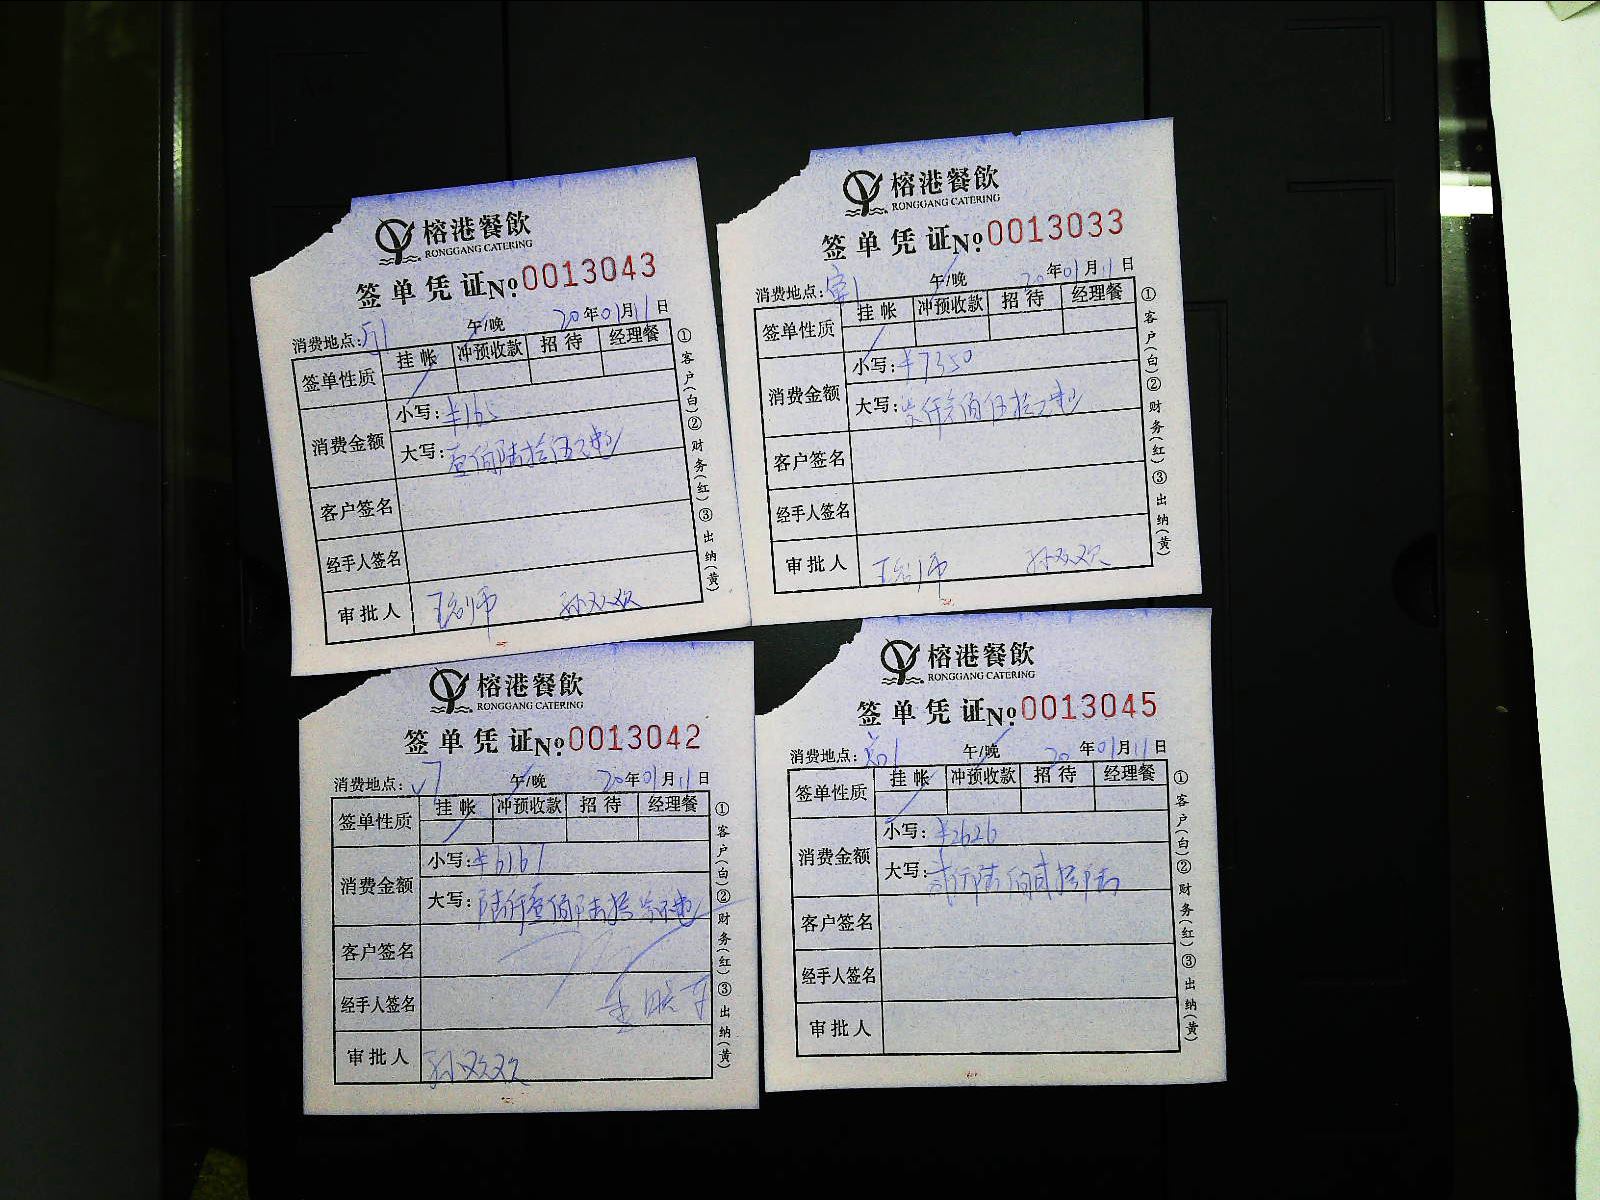 榕港餐飲
RONGGANG CATERING
签单凭证 No 0013043
消费地点: 午/晚 20年01月11日
签单性质 挂帐 冲预收款 招待 经理餐
消费金额 小写: ¥165
大写: 壹佰陆拾伍元整
客户签名
经手人签名
审批人 孙双欢
①客户(白)②财务(红)③出纳(黄)
榕港餐飲
RONGGANG CATERING
签单凭证 No 0013033
消费地点: 午/晚 20年01月11日
签单性质 挂帐 冲预收款 招待 经理餐
消费金额 小写: ¥7350
大写: 柒仟叁佰伍拾元整
客户签名
经手人签名
审批人 孙双欢
①客户(白)②财务(红)③出纳(黄)
榕港餐飲
RONGGANG CATERING
签单凭证 No 0013042
消费地点: 午/晚 20年01月11日
签单性质 挂帐 冲预收款 招待 经理餐
消费金额 小写: ¥6167
大写: 陆仟壹佰陆拾柒元整
客户签名
经手人签名
审批人 孙双欢
①客户(白)②财务(红)③出纳(黄)
榕港餐飲
RONGGANG CATERING
签单凭证 No 0013045
消费地点: 午/晚 20年01月11日
签单性质 挂帐 冲预收款 招待 经理餐
消费金额 小写: ¥2626
大写: 贰仟陆佰贰拾陆
客户签名
经手人签名
审批人
①客户(白)②财务(红)③出纳(黄)